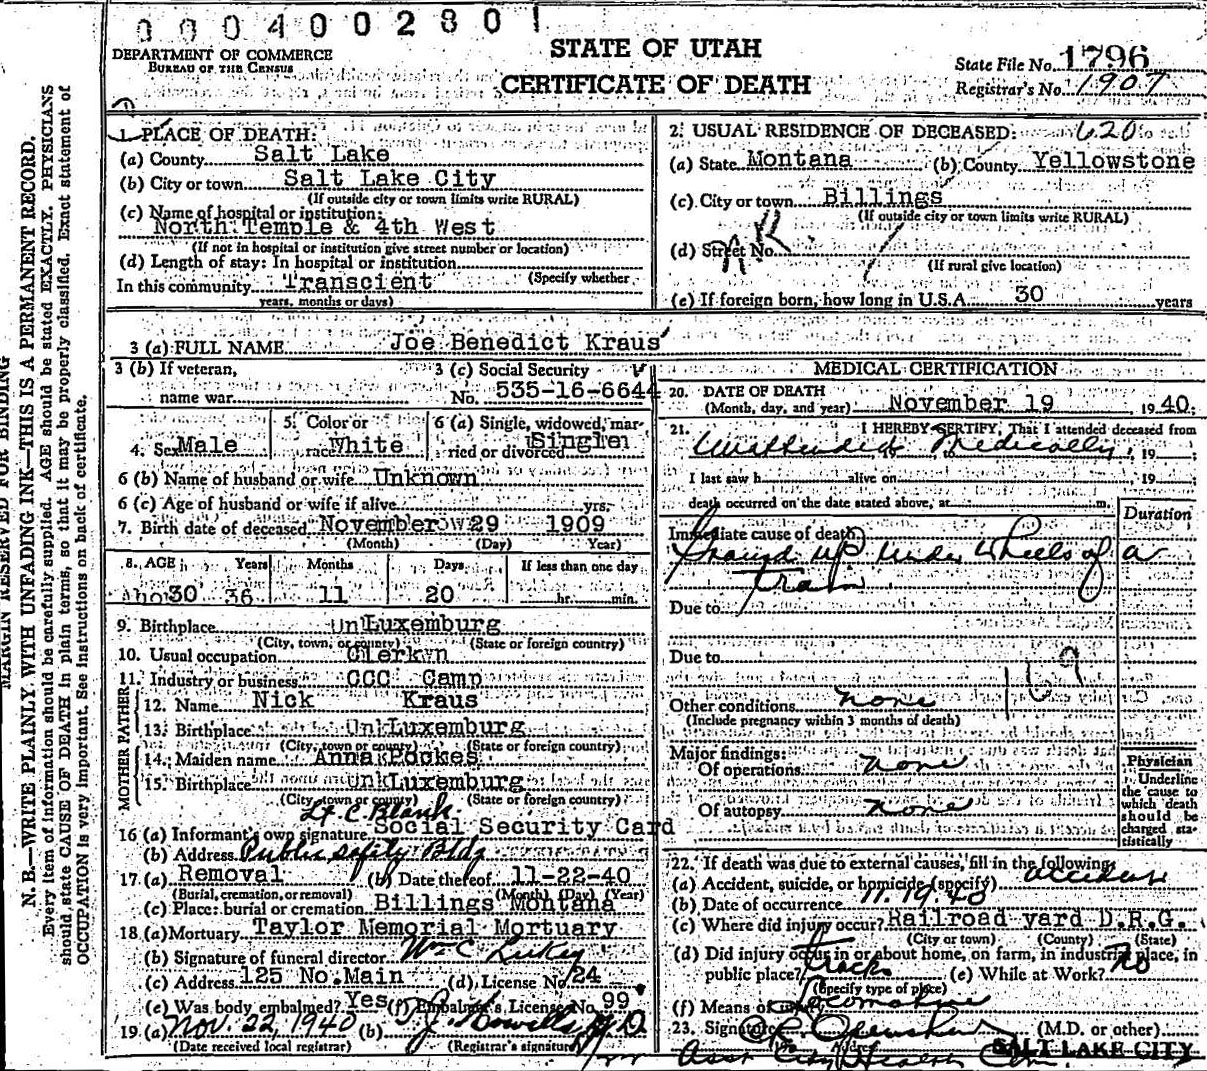 0004002801
DEPARTMENT OF COMMERCE
BUREAU OF THE CENSUS
STATE OF UTAH
CERTIFICATE OF DEATH
State File No. 1796
Registrar's No. 1907
MARGIN RESERVED FOR BINDING
N. B.—WRITE PLAINLY WITH UNFADING INK—THIS IS A PERMANENT RECORD.
Every item of information should be carefully supplied. AGE should be stated EXACTLY. PHYSICIANS
should state CAUSE OF DEATH in plain terms, so that it may be properly classified. Exact statement of
OCCUPATION is very important. See instructions on back of certificate.
1. PLACE OF DEATH:
(a) County Salt Lake
(b) City or town Salt Lake City
(If outside city or town limits write RURAL)
(c) Name of hospital or institution:
North Temple & 4th West
(If not in hospital or institution give street number or location)
(d) Length of stay: In hospital or institution
(Specify whether
In this community Transcient
years, months or days)
2. USUAL RESIDENCE OF DECEASED: 620
(a) State Montana (b) County Yellowstone
(c) City or town Billings
(If outside city or town limits write RURAL)
(d) Street No.
(If rural give location)
(e) If foreign born, how long in U.S.A. 30 years
3 (a) FULL NAME Joe Benedict Kraus
3 (b) If veteran,
name war
3 (c) Social Security
No. 535-16-6644
4. Sex Male
5. Color or
race White
6 (a) Single, widowed, mar-
ried or divorced Single
6 (b) Name of husband or wife Unknown
6 (c) Age of husband or wife if alive yrs.
7. Birth date of deceased November 29 1909
(Month) (Day) (Year)
8. AGE Years Months Days If less than one day
30 36 11 20 hr. min.
9. Birthplace Un Luxemburg
(City, town, or county) (State or foreign country)
10. Usual occupation Clerk
11. Industry or business CCC Camp
FATHER
12. Name Nick Kraus
13. Birthplace Un Luxemburg
(City, town or county) (State or foreign country)
MOTHER
14. Maiden name Anna Pockes
15. Birthplace unk Luxemburg
(City, town or county) (State or foreign country)
Lt. C Blank
16 (a) Informant's own signature Social Security Card
(b) Address Public Safity Bldg
17. (a) Removal (b) Date thereof 11-22-40
(Burial, cremation, or removal) (Month) (Day) (Year)
(c) Place: burial or cremation Billings Montana
18. (a) Mortuary Taylor Memorial Mortuary
(b) Signature of funeral director Wm C
(c) Address 125 No. Main (d) License No. 24
(e) Was body embalmed? Yes (f) Embalmer's License No. 99
19. (a) Nov. 22, 1940 (b) M.D.
(Date received local registrar) (Registrar's signature)
MEDICAL CERTIFICATION
20. DATE OF DEATH
(Month, day, and year) November 19 1940;
21. I HEREBY CERTIFY, That I attended deceased from
Unattended Medically, 19
I last saw h alive on 19
death occurred on the date stated above, at m.
Duration
Immediate cause of death
Ground up under wheels of a
train
Due to
Due to
169
Other conditions none
(Include pregnancy within 3 months of death)
Major findings:
Of operations none
Of autopsy none
Physician
Underline
the cause to
which death
should be
charged sta-
tistically
22. If death was due to external causes, fill in the following:
(a) Accident, suicide, or homicide (specify) accident
(b) Date of occurrence 11.19.40
(c) Where did injury occur? Railroad yard D.R.G.
(City or town) (County) (State)
(d) Did injury occur in or about home, on farm, in industrial place, in
public place? tracks (e) While at Work? no
(Specify type of place)
(f) Means of injury Locomotive
23. Signature (M.D. or other)
Address
Asst City Health Com.
SALT LAKE CITY